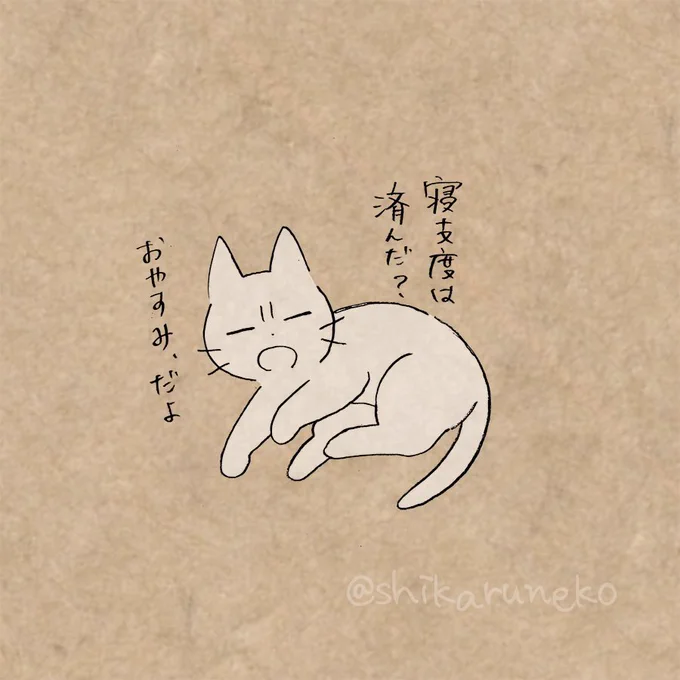 寝支度は
済んだ?
おやすみ、だよ
@shikaruneko